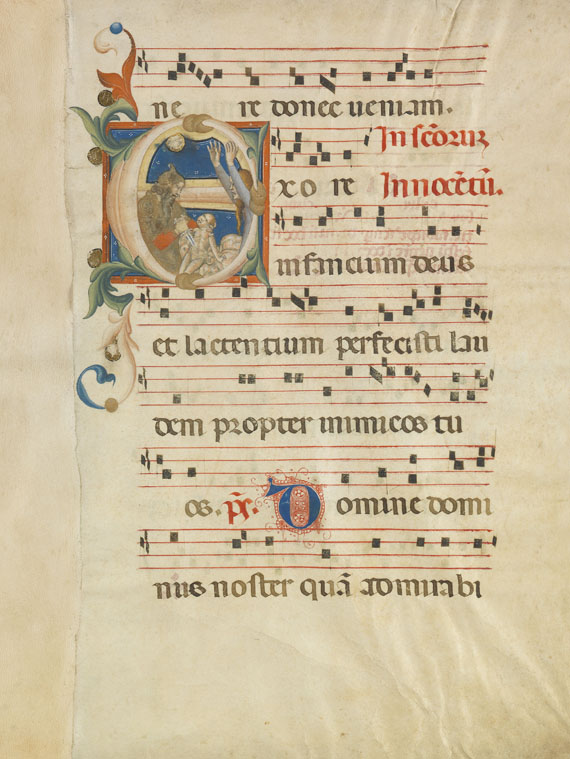 ne re donec ueniam.
In scōruꝝ
Exo re Innocētū.
infancium deus
et lactencium perfecisti lau
dem propter inimicos tu
os. ps. Domine domi
nus noster quā admirabi